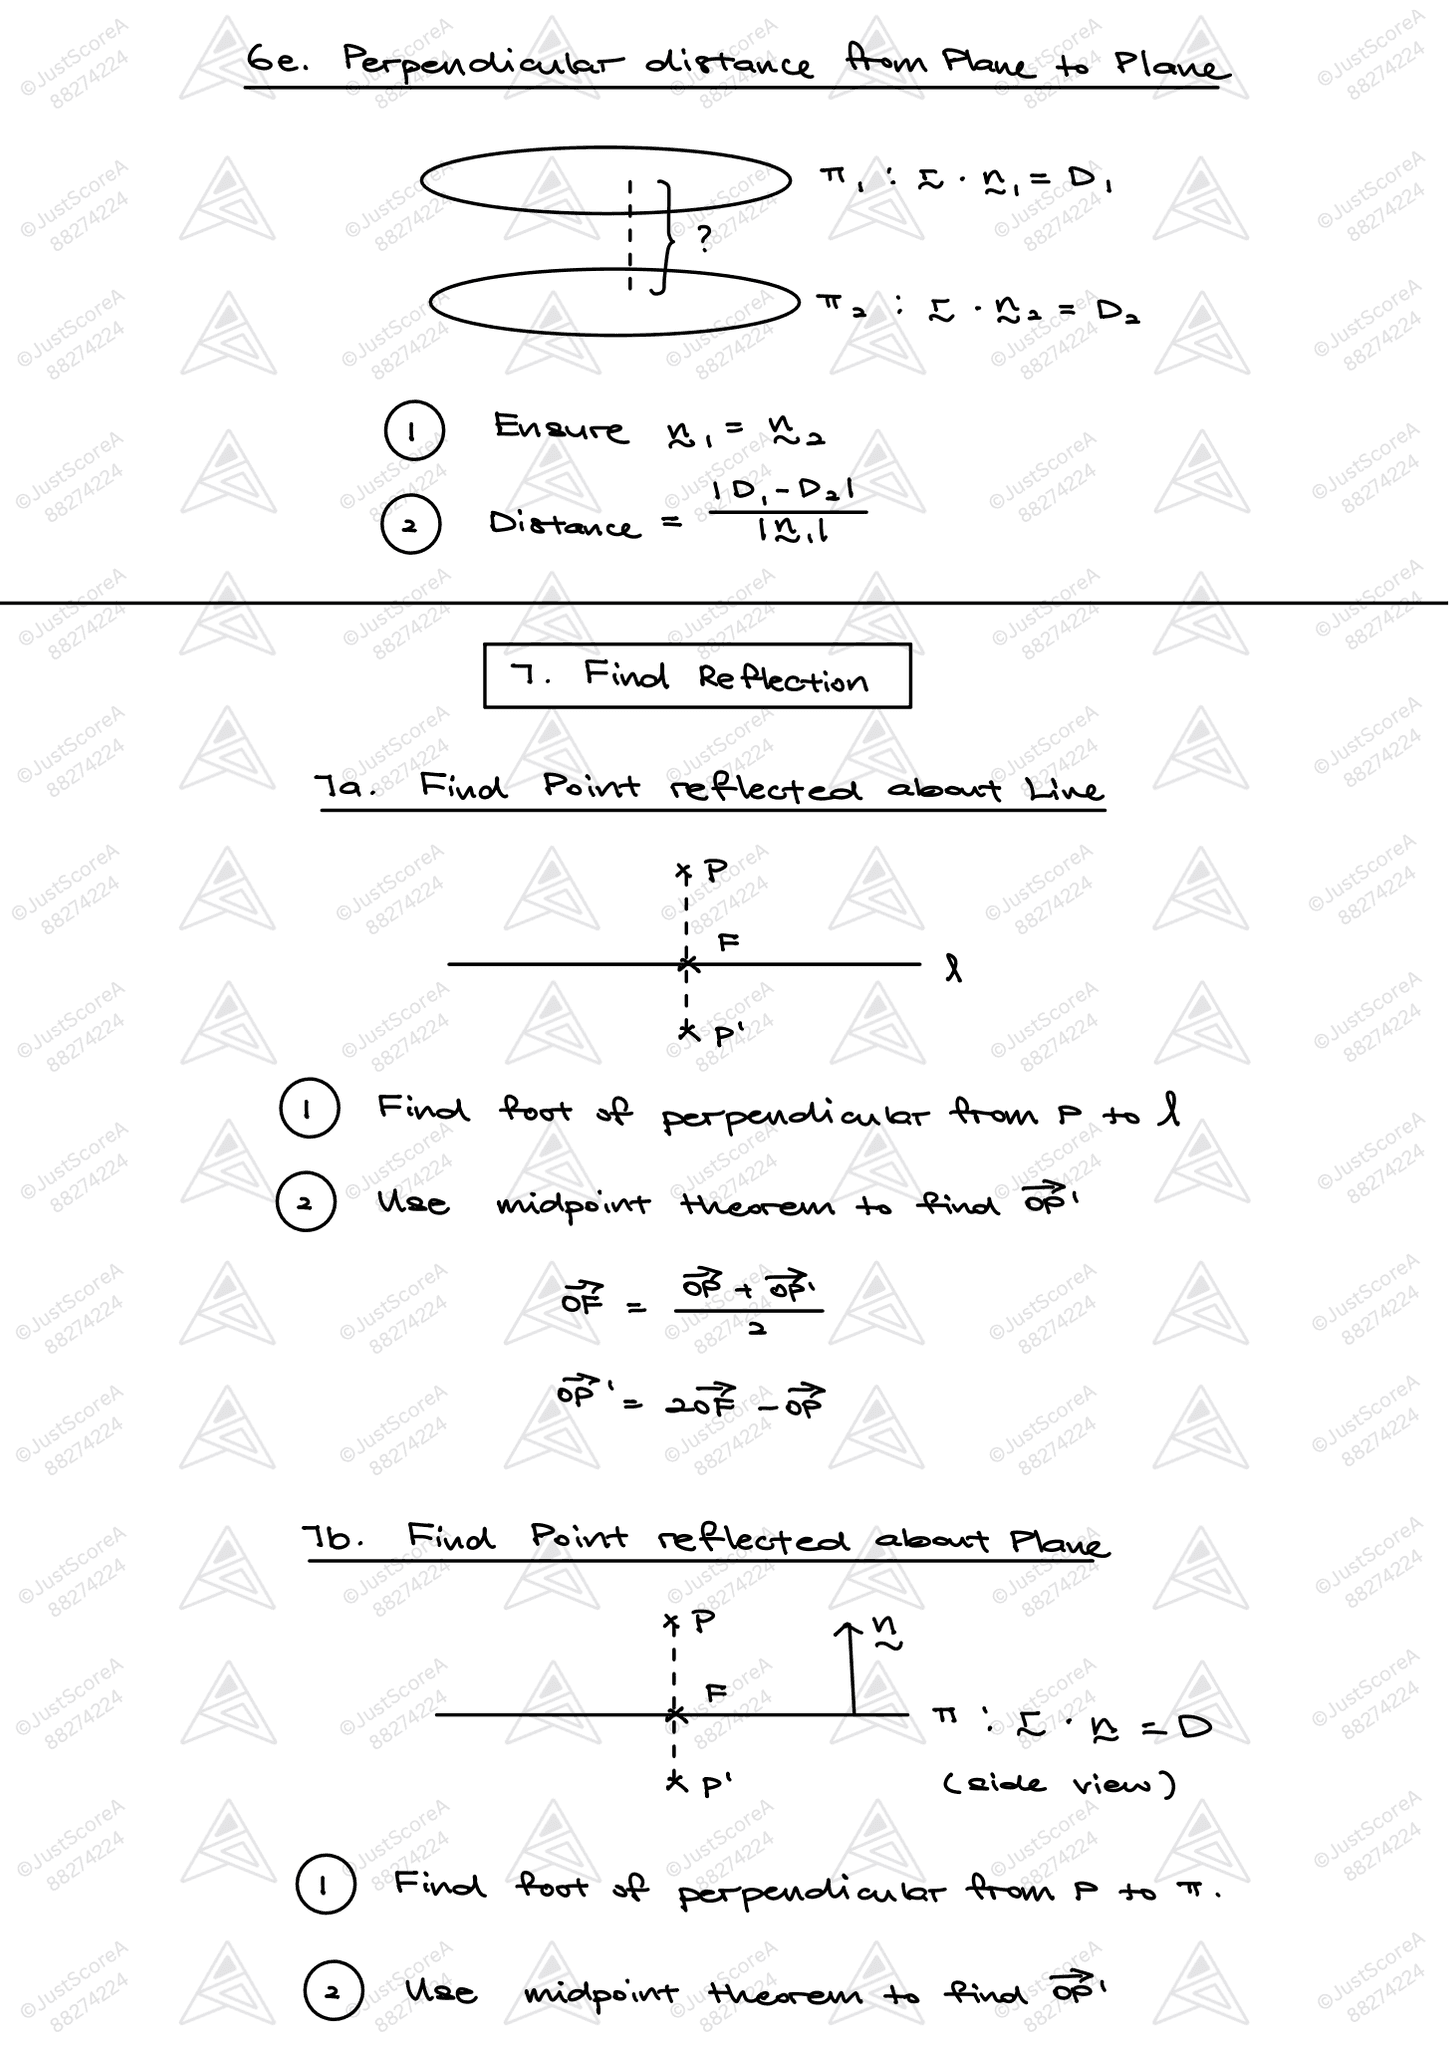 6e. Perpendicular distance from Plane to Plane
π₁ : r̰ · ṋ₁ = D₁
?
π₂ : r̰ · ṋ₂ = D₂
① Ensure ṋ₁ = ṋ₂
② Distance = |D₁ - D₂| / |ṋ₁|
7. Find Reflection
7a. Find Point reflected about Line
P
F
l
P'
① Find foot of perpendicular from P to l
② Use midpoint theorem to find OP⃗'
OF⃗ = (OP⃗ + OP⃗') / 2
OP⃗' = 2OF⃗ - OP⃗
7b. Find Point reflected about Plane
P
ṋ
F
π : r̰ · ṋ = D
P'
(side view)
① Find foot of perpendicular from P to π.
② Use midpoint theorem to find OP⃗'
©JustScoreA
88274224